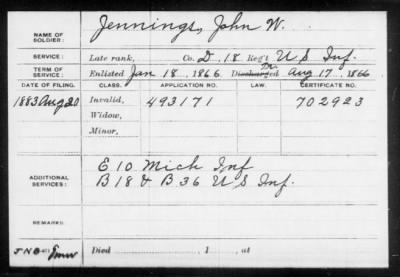 NAME OF SOLDIER: Jennings, John W.
SERVICE: Late rank, Co. D, 18 Reg't U S Inf.
TERM OF SERVICE: Enlisted Jan 18, 1866 Discharged Aug 17, 1866
DATE OF FILING. CLASS. APPLICATION NO. LAW. CERTIFICATE NO.
1883 Aug 20 Invalid, 493171 702923
Widow,
Minor,
ADDITIONAL SERVICES: E 10 Mich Inf
B 18 & B 36 U S Inf.
REMARKS:
Died , 1 , at